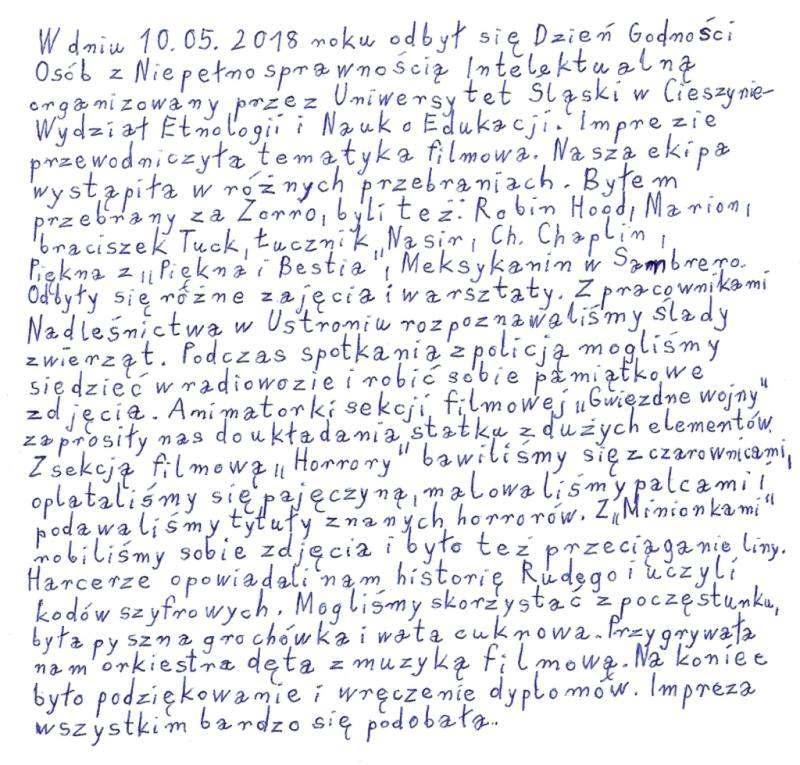 W dniu 10.05.2018 roku odbył się Dzień Godności
Osób z Niepełnosprawnością Intelektualną
organizowany przez Uniwersytet Śląski w Cieszynie-
Wydział Etnologii i Nauk o Edukacji. Imprezie
przewodniczyła tematyka filmowa. Nasza ekipa
wystąpiła w różnych przebraniach. Byłem
przebrany za Zorro, byli też: Robin Hood, Marion,
braciszek Tuck, Łucznik „Nasir, Ch. Chaplin,
Piękna z „Piękna i Bestia", Meksykanin w Sambrero.
Odbyły się różne zajęcia i warsztaty. Z pracownikami
Nadleśnictwa w Ustroniu rozpoznawaliśmy ślady
zwierząt. Podczas spotkania z policją mogliśmy
siedzieć w radiowozie i robić sobie pamiątkowe
zdjęcia. Animatorki sekcji filmowej „Gwiezdne wojny"
zaprosiły nas do układania statku z dużych elementów.
Z sekcją filmową „Horrory" bawiliśmy się z czarownicami,
oplataliśmy się pajęczyną, malowaliśmy palcami i
podawaliśmy tytuły znanych horrorów. Z „Minionkami"
robiliśmy sobie zdjęcia i było też przeciąganie liny.
Harcerze opowiadali nam historię Rudego i uczyli
kodów szyfrowych. Mogliśmy skorzystać z poczęstunku,
była pyszna grochówka i wata cuknowa. Przygrywała
nam orkiestra dęta z muzyką filmową. Na koniec
było podziękowanie i wręczenie dyplomów. Impreza
wszystkim bardzo się podobała..